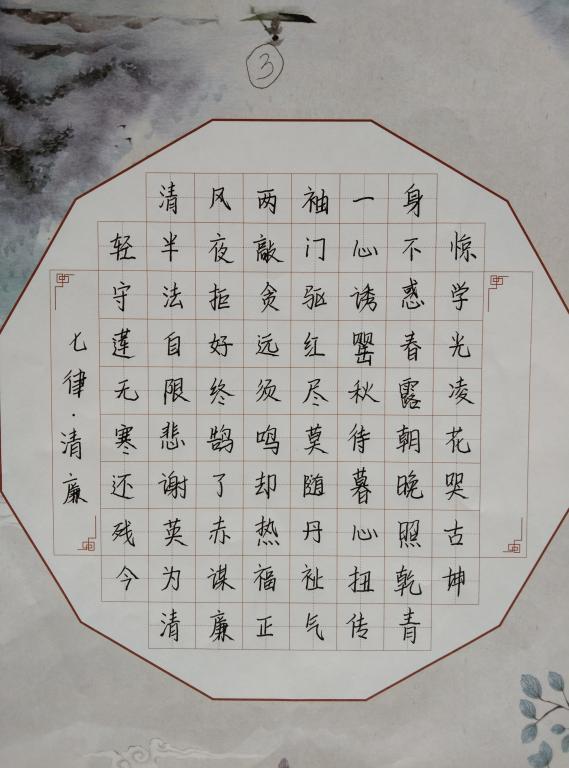 ③
清风两袖一身
轻半夜敲门心不惊
守法拒贪驱诱惑学
莲自好远红罂春光
无限终须尽秋露凌
寒悲鹄鸣莫待朝花
还谢了却随暮晚哭
残英赤热丹心照古
今为谋福祉扭乾坤
清廉正气传青
七律·清廉